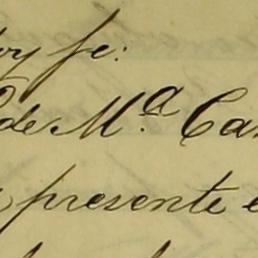 doy fe:
de M.ª Car
presente e